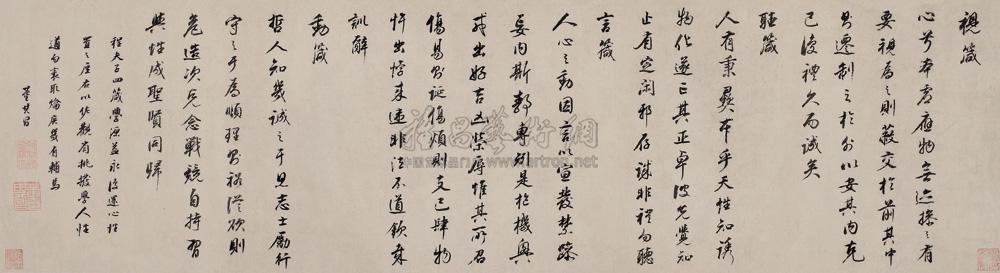 視箴
心兮本虛應物無迹操之有
要視為之則蔽交於前其中
則遷制之於外以安其內克
己復禮久而誠矣
聽箴
人有秉彝本乎天性知誘
物化遂亡其正卓彼先覺知
止有定閑邪存誠非禮勿聽
言箴
人心之動因言以宣發禁躁
妄內斯靜專矧是樞機興
戎出好吉凶榮辱惟其所召
傷易則誕傷煩則支己肆物
忤出悖來違非法不道欽哉
訓辭
動箴
哲人知幾誠之于思志士勵行
守之于為順理則裕從欲則
危造次克念戰兢自持習
與性成聖賢同歸
程夫子四箴學源益永
置之座右以佐觀
庶幾有補焉
董其昌
雅昌藝術網